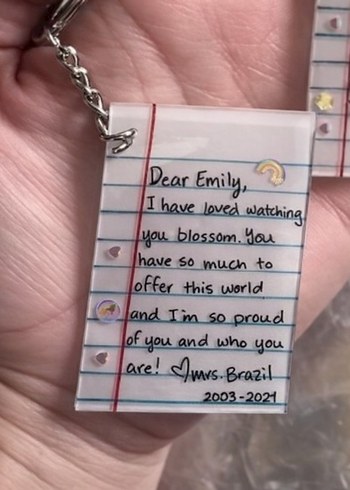 Dear Emily,
I have loved watching
you blossom. You
have so much to
offer this world
and I'm so proud
of you and who you
are! ♡mrs. Brazil
2003-2021